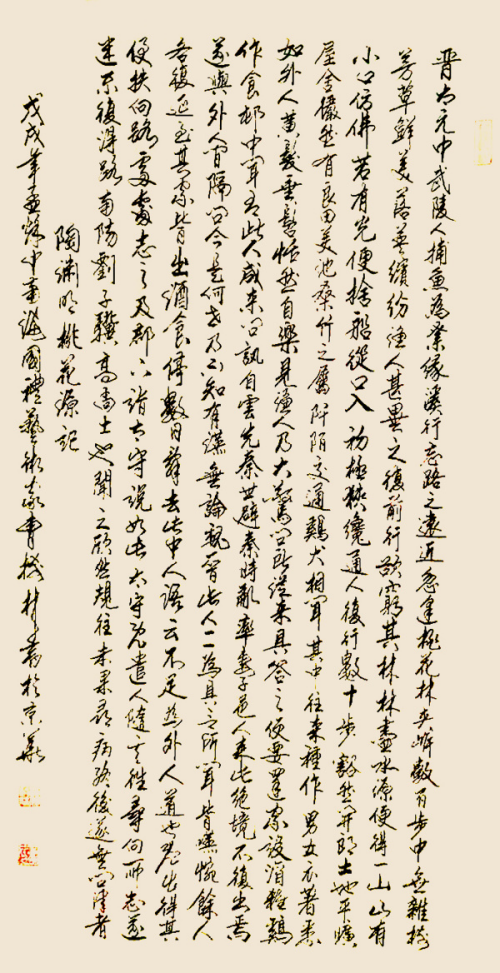 晋太元中武陵人捕魚為業緣溪行忘路之遠近忽逢桃花林夾岸數百步中無雜樹
芳草鮮美落英繽紛漁人甚異之復前行欲窮其林林盡水源便得一山山有
小口仿佛若有光便捨船從口入初極狹纔通人復行數十步豁然開朗土地平曠
屋舍儼然有良田美池桑竹之屬阡陌交通鷄犬相聞其中往來種作男女衣著悉
如外人黃髮垂髫怡然自樂見漁人乃大驚問所從來具答之便要還家設酒殺鷄
作食村中聞有此人咸來問訊自雲先秦世避秦時亂率妻子邑人來此絕境不復出焉
遂與外人間隔問今是何世乃不知有漢無論魏晉此人一一為具言所聞皆嘆惋餘人
各復延至其家皆出酒食停數日辭去此中人語云不足為外人道也既出得其
便扶向路處處志之及郡下詣太守說如此太守既遣人隨其往尋向所志遂
迷不復得路南陽劉子驥高尚士也聞之欣然規往未果尋病終後遂無問津者
陶淵明桃花源記
戊戌年孟中國禮藝術家青林書於京華